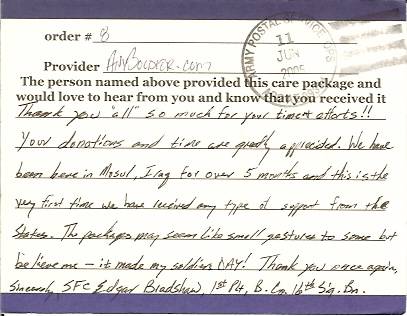 order # 8
Provider AnySoldier.com
The person named above provided this care package and
would love to hear from you and know that you received it
Thank you "all" so much for your time & efforts!!
Your donations and time are greatly appreciated. We have
been here in Mosul, Iraq for over 5 months and this is the
very first time we have received any type of support from the
States. The packages may seem like small gestures to some but
believe me – it made my soldiers DAY! Thank you once again,
Sincerely, SFC Edgar Bradshaw, 1st Plt, B. Co. 16th Sig. Bn.
ARMY POSTAL SERVICE
11
JUN